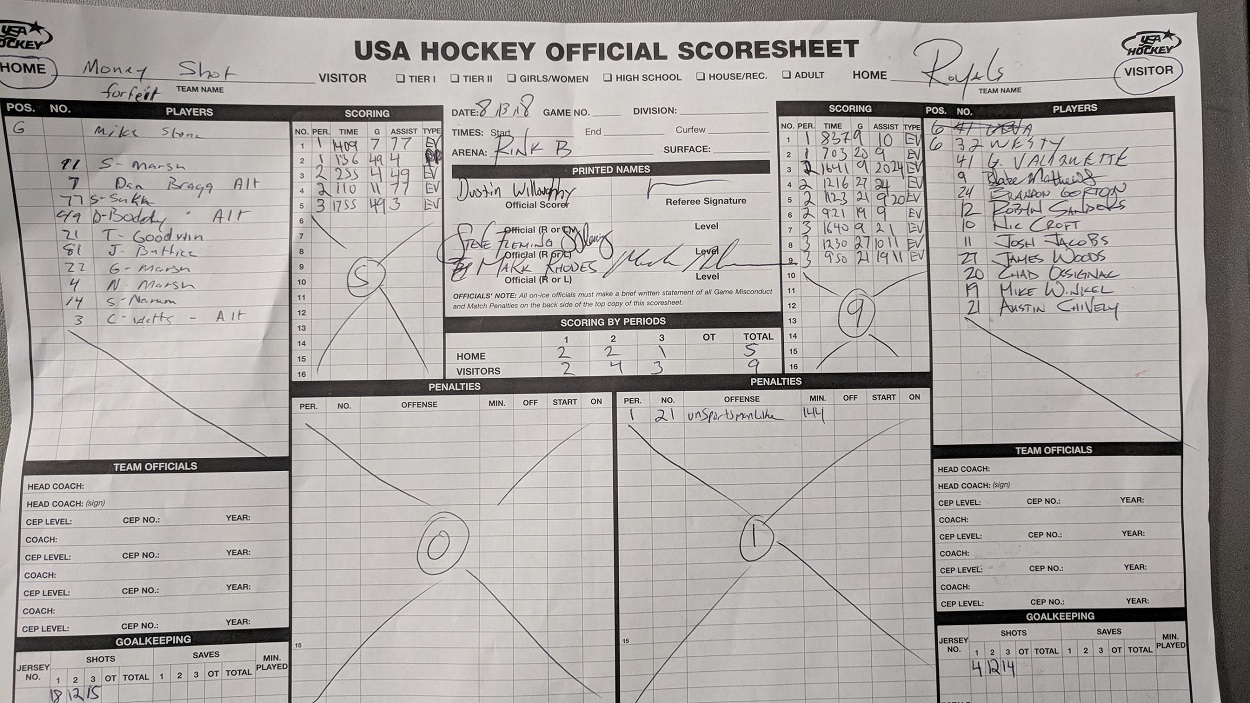 USA HOCKEY OFFICIAL SCORESHEET
USA HOCKEY
USA HOCKEY
HOME Money Shot VISITOR ☐ TIER I ☐ TIER II ☐ GIRLS/WOMEN ☐ HIGH SCHOOL ☐ HOUSE/REC. ☐ ADULT HOME Royals VISITOR
forfeit TEAM NAME TEAM NAME
POS. NO. PLAYERS
G Mike Stone
91 S-Marsh
7 Dan Bragg Alt
77 S-Sukk
49 D-Boddy - Alt
21 T-Goodwin
81 J-Butler
22 G-Marsh
4 N-Marsh
14 S-Narum
3 C-Watts - Alt
SCORING
NO. PER. TIME G ASSIST TYPE
1 1 1409 7 77 EV
2 1 136 49 4
3 2 255 4 49 EV
4 2 110 11 77 EV
5 3 1755 49 3 EV
6
7
8
9
10
11
12
13
14
15
16
5
DATE: 8/13/18 GAME NO. DIVISION:
TIMES: Start End Curfew
ARENA: RINK B SURFACE:
PRINTED NAMES
Dustin Willoughby
Official Scorer Referee Signature
Official (R or L) Level
STEVE FLEMING
Official (R or L) Level
MARK RHODES
Official (R or L) Level
OFFICIALS' NOTE: All on-ice officials must make a brief written statement of all Game Misconduct
and Match Penalties on the back side of the top copy of this scoresheet.
SCORING BY PERIODS
1 2 3 OT TOTAL
HOME 2 2 1 5
VISITORS 2 4 3 9
SCORING
NO. PER. TIME G ASSIST TYPE
1 1 837 9 10 EV
2 1 703 20 9 EV
3 2 1641 9 20 24 EV
4 2 1216 27 24 EV
5 2 1123 21 9 20 EV
6 2 921 19 9 EV
7 3 1640 9 21 EV
8 3 1230 27 10 11 EV
9 3 950 21 19 11 EV
10
11
12
13
14
15
16
9
POS. NO. PLAYERS
G 41
G 32 WESTY
41 G. VALIQUETTE
9 Blake Mathews
24 BRANDON GORTON
12 ROBYN SANDERS
10 NIC CROFT
11 JOSH JACOBS
27 JAMES WOODS
20 CHAD OSIGNAC
19 MIKE WINKEL
21 AUSTIN CHIVELY
PENALTIES
PER. NO. OFFENSE MIN. OFF START ON
0
15
PENALTIES
PER. NO. OFFENSE MIN. OFF START ON
1 21 unSportsmanLike 144
1
15
TEAM OFFICIALS
HEAD COACH:
HEAD COACH: (sign)
CEP LEVEL: CEP NO.: YEAR:
COACH:
CEP LEVEL: CEP NO.: YEAR:
COACH:
CEP LEVEL: CEP NO.: YEAR:
COACH:
CEP LEVEL: CEP NO.: YEAR:
GOALKEEPING
JERSEY NO. SHOTS SAVES MIN. PLAYED
1 2 3 OT TOTAL 1 2 3 OT TOTAL
18 12 15
TEAM OFFICIALS
HEAD COACH:
HEAD COACH: (sign)
CEP LEVEL: CEP NO.: YEAR:
COACH:
CEP LEVEL: CEP NO.: YEAR:
COACH:
CEP LEVEL: CEP NO.: YEAR:
COACH:
CEP LEVEL: CEP NO.: YEAR:
GOALKEEPING
JERSEY NO. SHOTS SAVES MIN. PLAYED
1 2 3 OT TOTAL 1 2 3 OT TOTAL
4 12 14